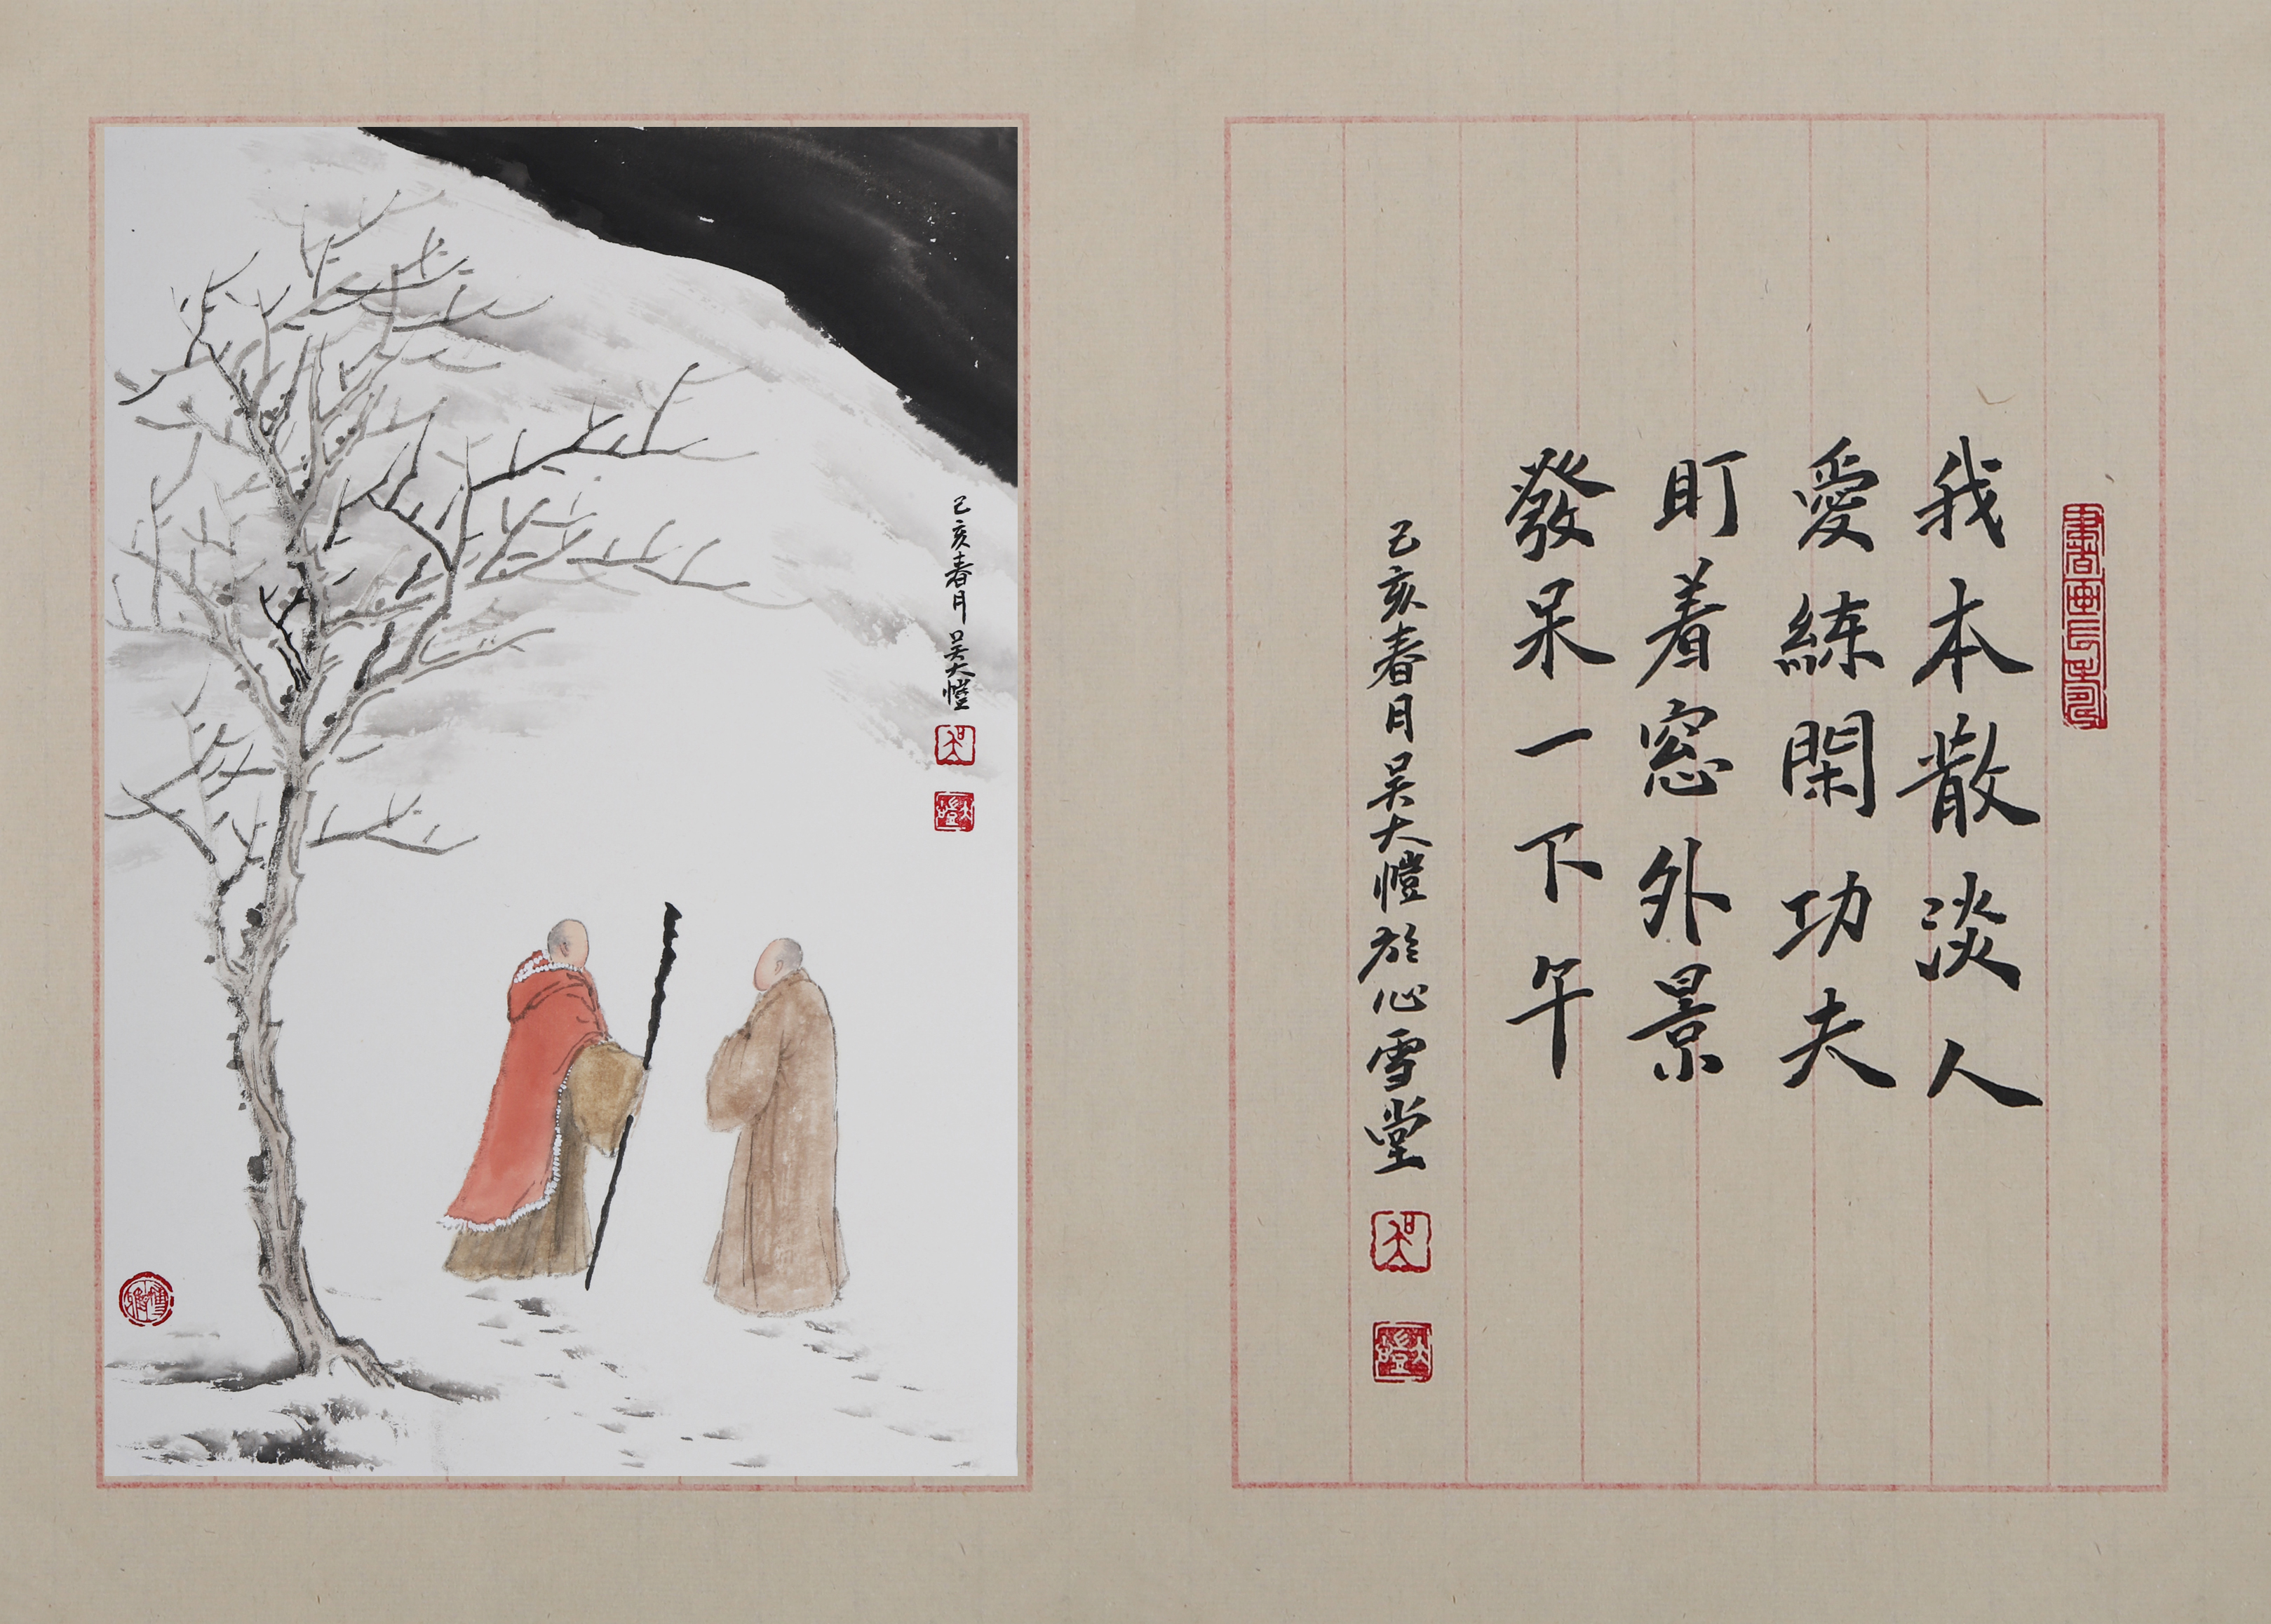 我本散淡人
愛練閑功夫
盯着窓外景
發呆一下午
己亥春月吴大愷於心雪堂
己亥春月吴大愷